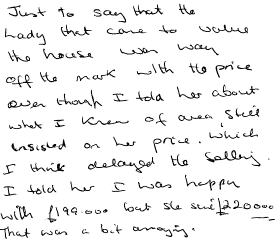 Just to say that the
Lady that came to value
the house was way
off the mark with the price
even though I told her about
what I knew of area, still
insisted on her price. Which
I think delayed the selling.
I told her I was happy
with £199.000 but she said £220000
That was a bit annoying.